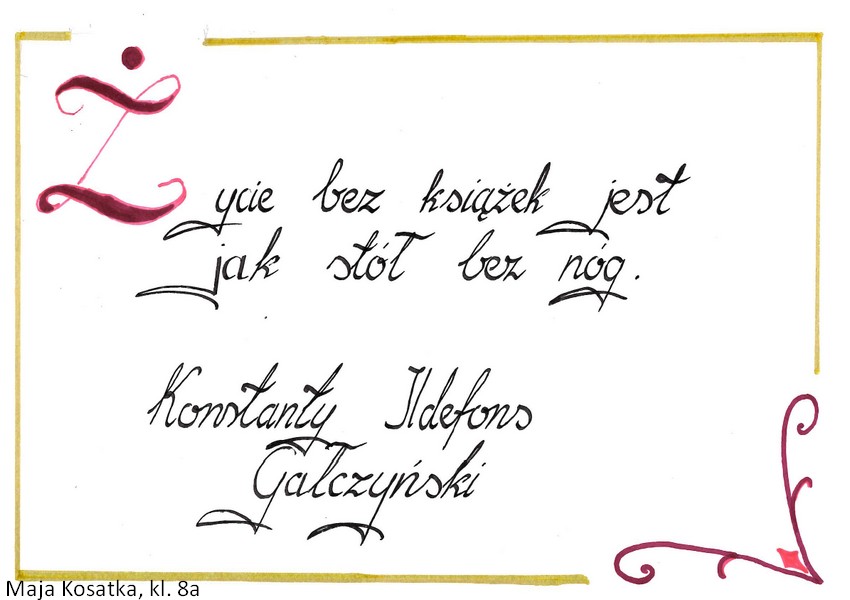 Życie bez książek jest
jak stół bez nóg.
Konstanty Ildefons
Gałczyński
Maja Kosatka, kl. 8a